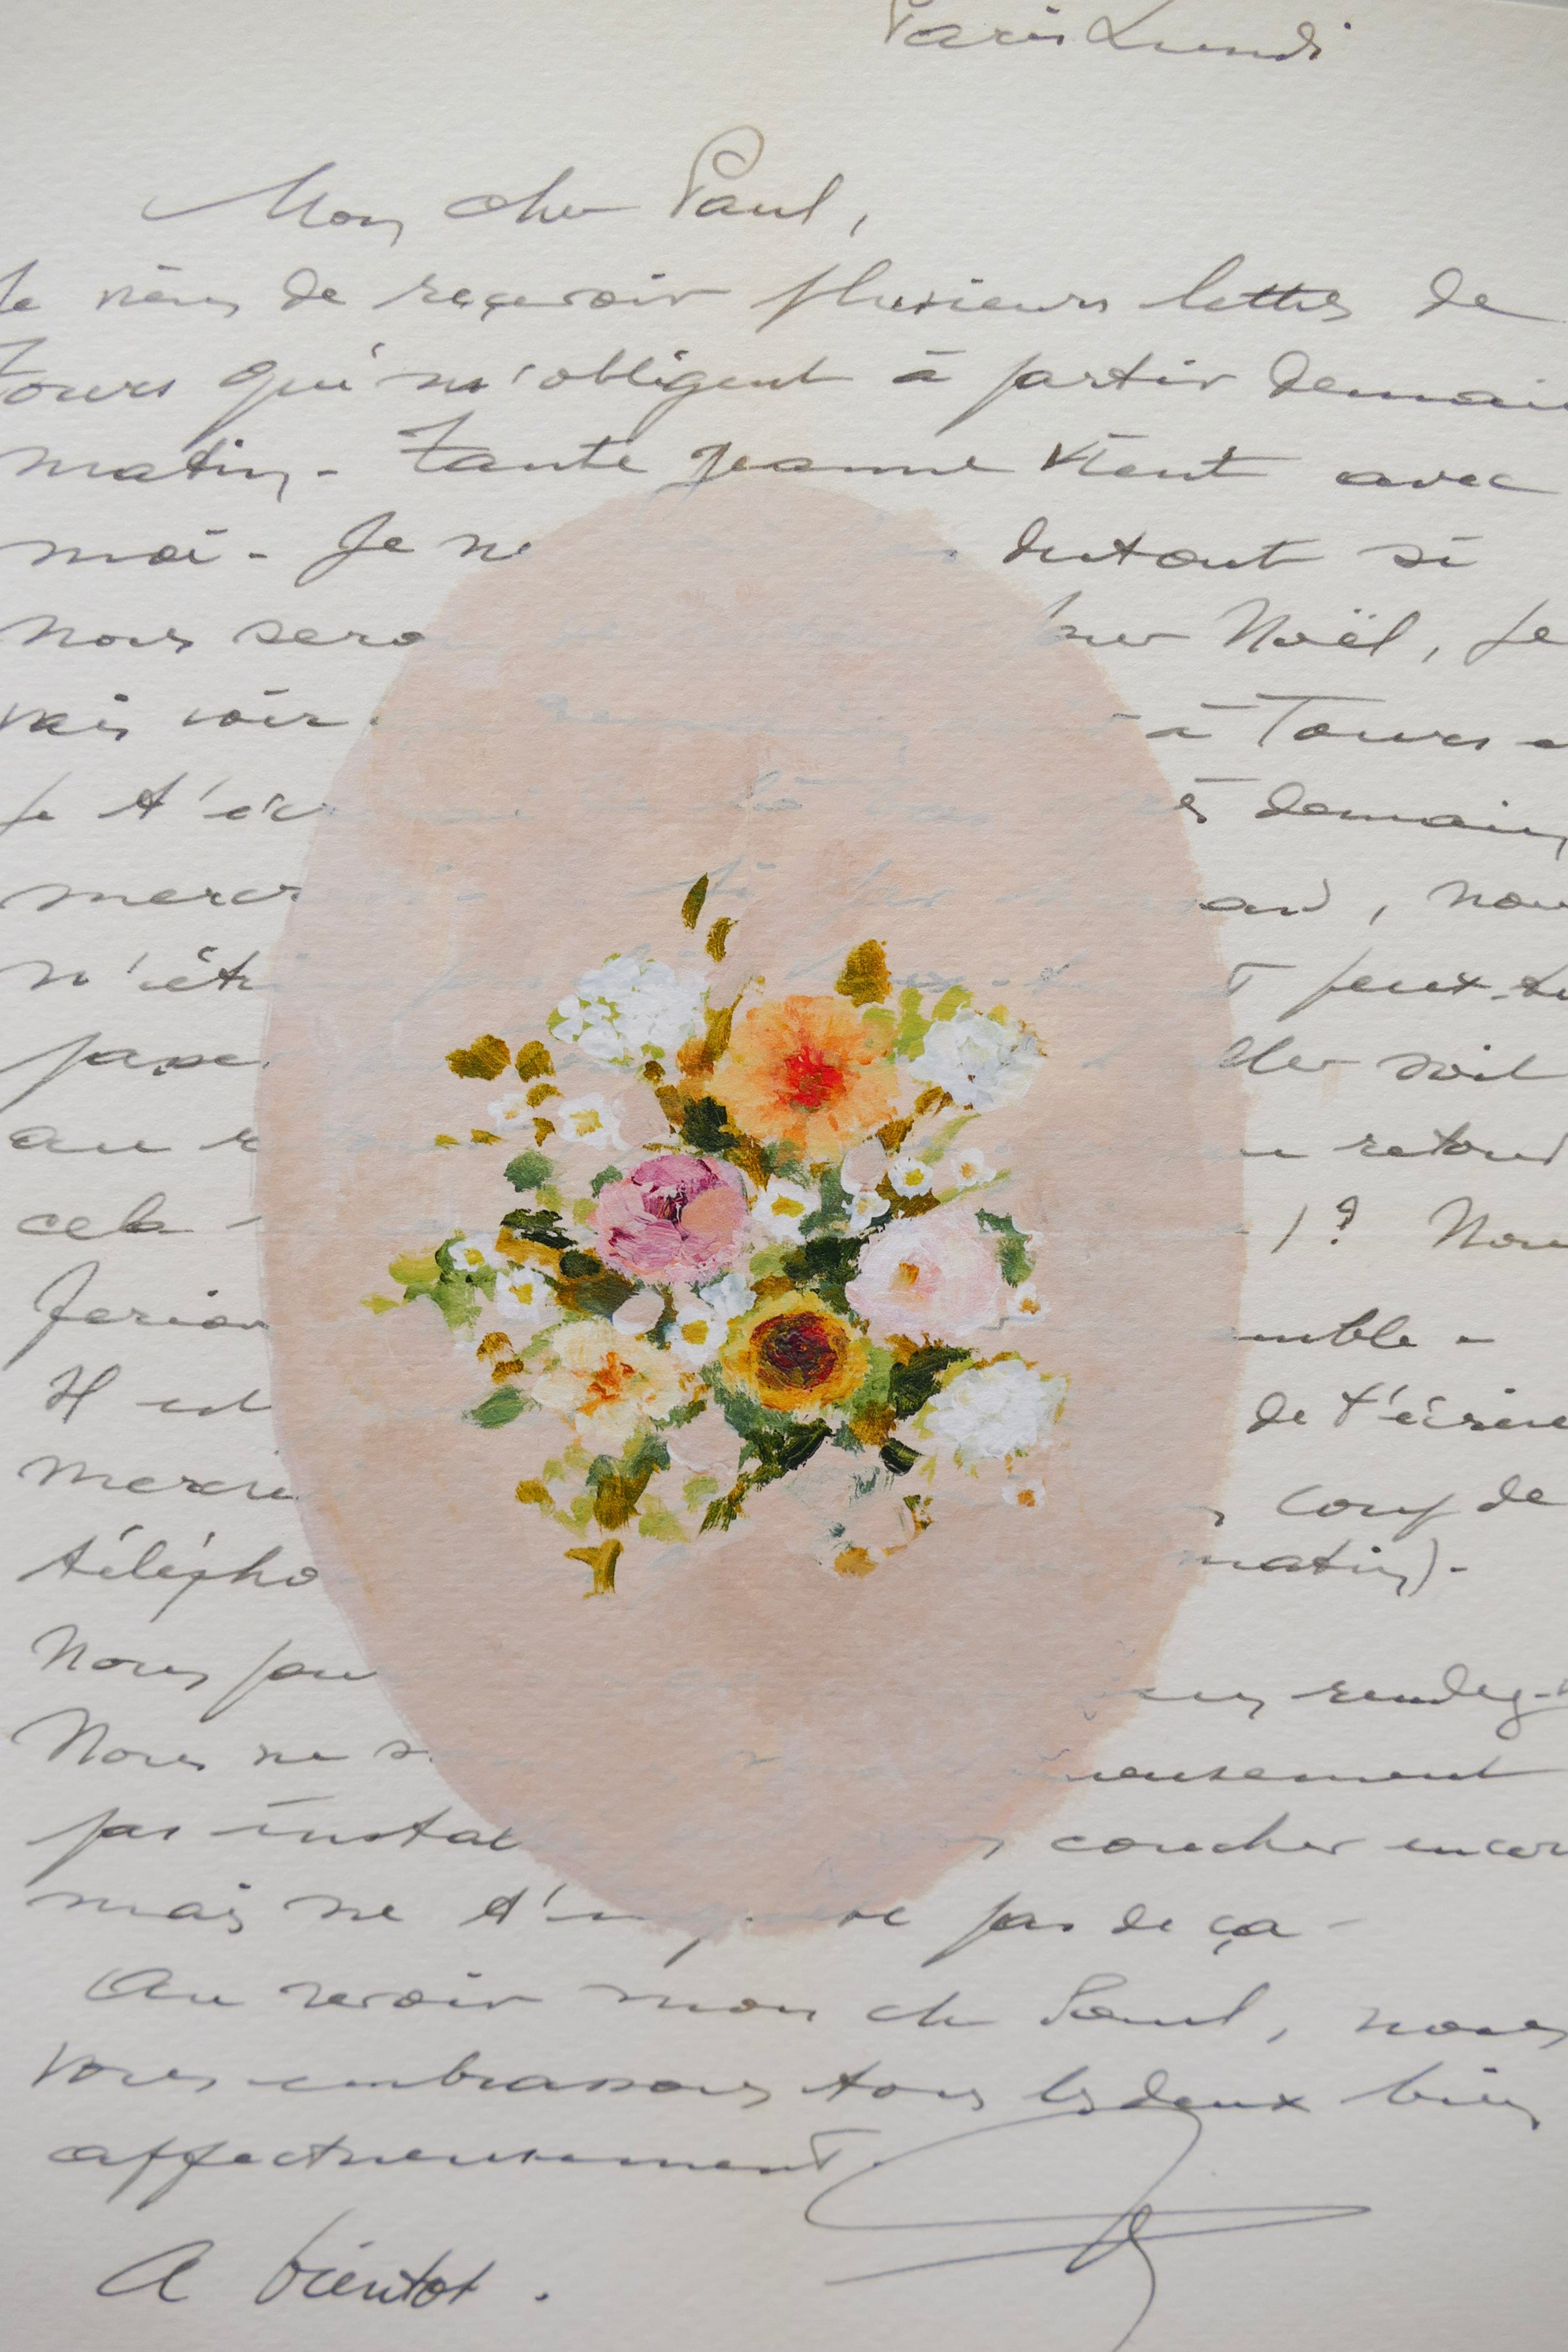 Paris Lundi
Mon cher Paul,
Je viens de reçevoir plusieurs lettres de
Tours qui m'obligent à partir demain
matin - Tante Jeanne vient avec
moi - Je ne dutout si
nous sero Noël, je
vais voir à Tours
Je t'éc demain,
merc nou
n'êt peux-tu
passe soit
au retour
cela - ? Nou
ferion emble -
Il est de t'écrire
mercre coup de
télépho matin) -
Nous pou rendez-v
Nous ne s reusement
pas instal coucher encor
mais ne t'in pas de ça -
Au revoir mon cher Paul, nous
vous embrassons tous les deux bien
affectueusement
A bientot.